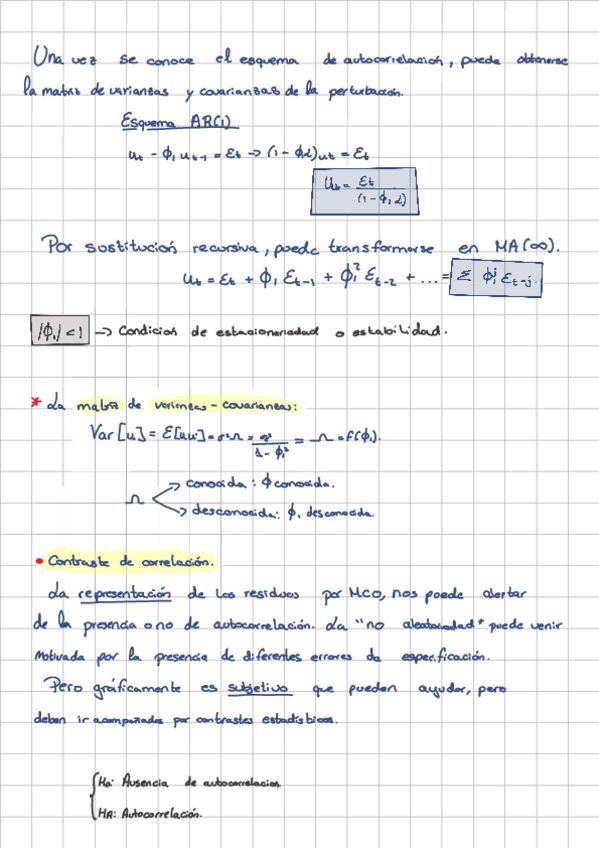 Una vez se conoce el esquema de autocorrelación, puede obtenerse
la matriz de varianzas y covarianzas de la perturbación.
Esquema AR(1)
ut - ϕ1 ut-1 = εt → (1 - ϕ1L)ut = εt
ut = εt / (1 - ϕ1L)
Por sustitución recursiva, puede transformarse en MA(∞).
ut = εt + ϕ1 εt-1 + ϕ1² εt-2 + ... = Σ ϕ1^j εt-j
|ϕ1| < 1 → Condición de estacionariedad o estabilidad.
* La matriz de varianzas - covarianzas:
Var[u] = E[uu'] = σ²Ω = σ² / (1 - ϕ1²) = Ω = f(ϕ1).
Ω → conocida: ϕ conocida.
→ desconocida: ϕ1 desconocida.
• Contraste de correlación.
La representación de los residuos por MCO, nos puede alertar
de la presencia o no de autocorrelación. La "no aleatoriedad" puede venir
motivada por la presencia de diferentes errores de especificación.
Pero gráficamente es subjetivo que pueden ayudar, pero
deben ir acompañados por contrastes estadísticos.
H0: Ausencia de autocorrelación
HA: Autocorrelación.